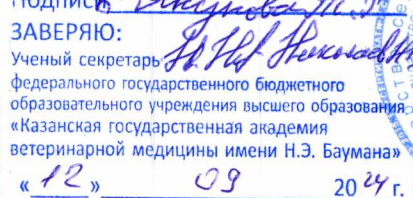 ЗАВЕРЯЮ:
Ученый секретарь
федерального государственного бюджетного
образовательного учреждения высшего образования
«Казанская государственная академия
ветеринарной медицины имени Н.Э. Баумана»
« 12 » 09 2024 г.